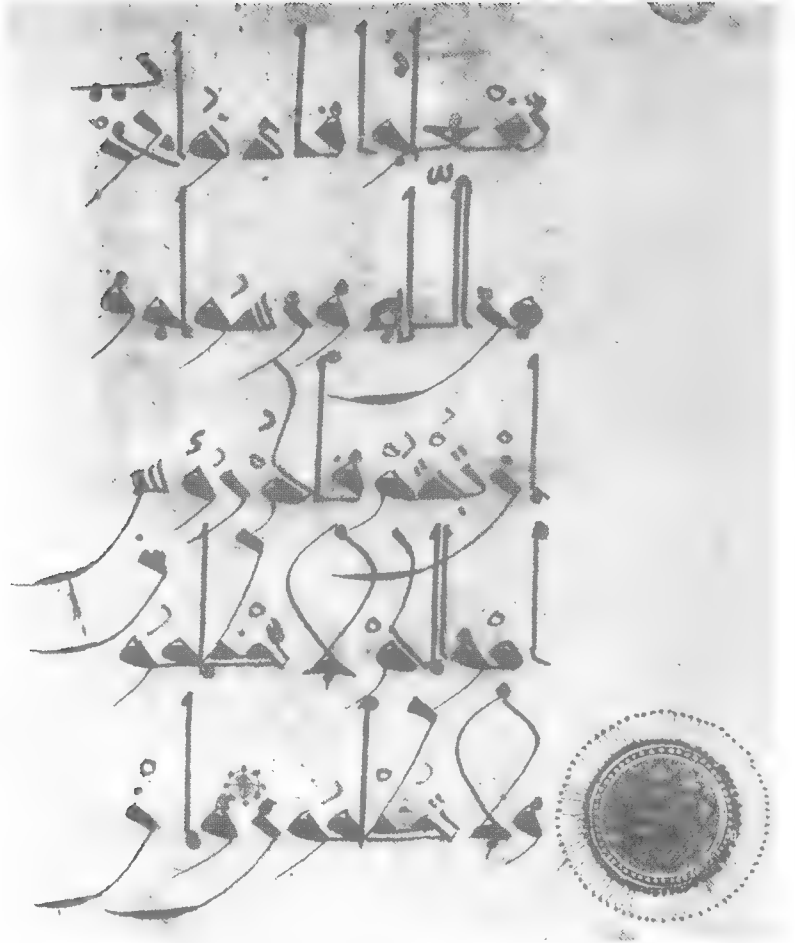 تفعلوا فاذنوا بحرب
من الله ورسوله و
ان تبتم فلكم روس
اموالكم لا تظلمون
ولا تظلمون وان